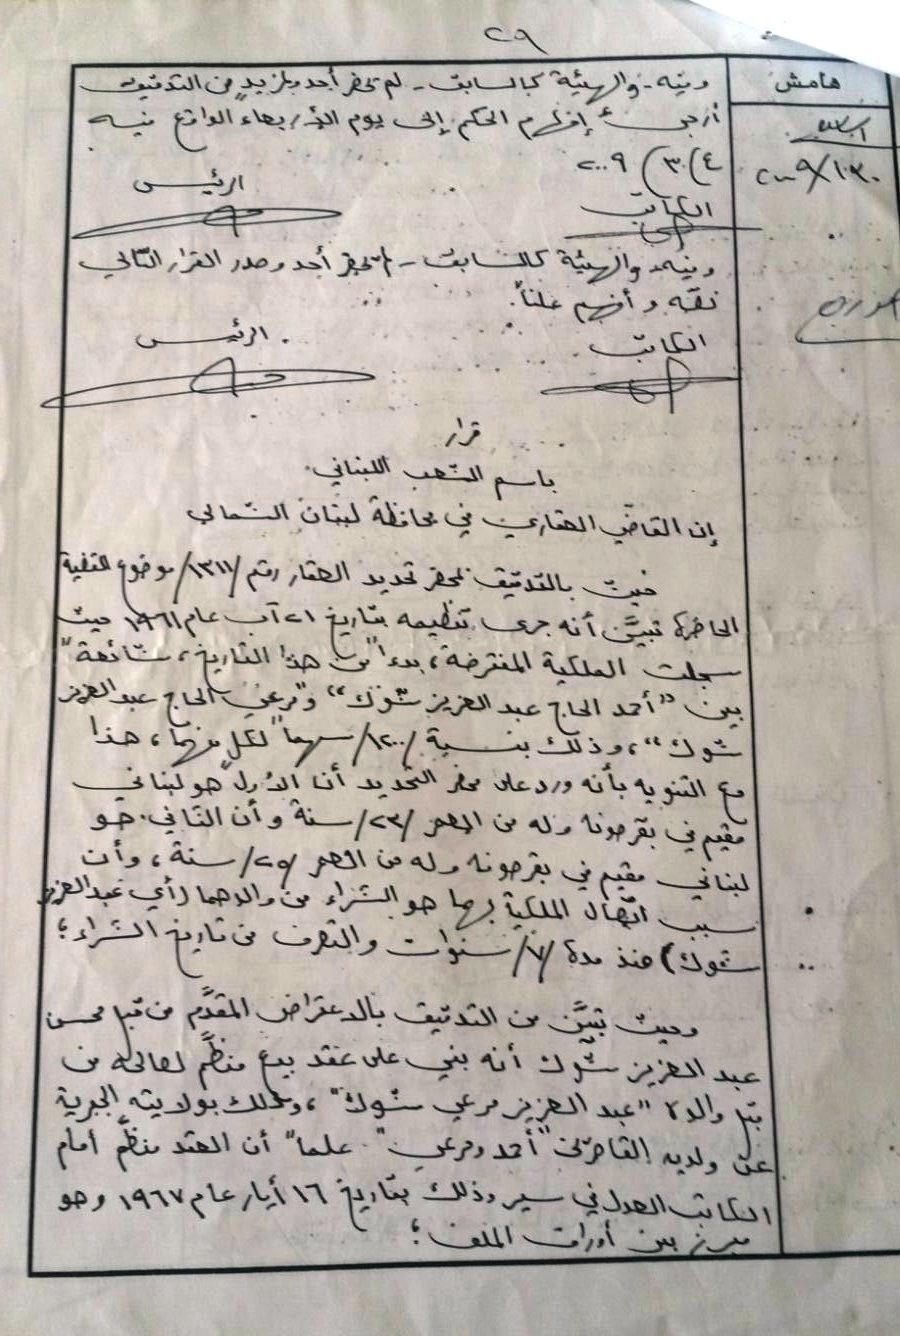 ٢٩
هامش
٢٠٠٩/١/٣٠
وفيه - والهيئة كالسابق - لم يحضر أحد ولمزيد من التدقيق
أرجىء إفهام الحكم إلى يوم الأربعاء الواقع فيه
٤/٣/٢٠٠٩
الكاتب الرئيس
وفيه والهيئة كالسابق - لم يحضر أحد وصدر القرار التالي
نصّه وأفهم علناً.
الكاتب الرئيس
قرار
باسم الشعب اللبناني.
إن القاضي العقاري في محافظة لبنان الشمالي
حيث بالتدقيق بمحضر تحديد العقار رقم /١٣١١/ موضوع القضية
الحاضرة تبيَّن أنه جرى تنظيمه بتاريخ ٢١ آب عام ١٩٦١ حيث
سجلت الملكية المفترضة، بدءاً من هذا التاريخ، شائعة
بين "أحمد الحاج عبد العزيز شوك" و"مرعي الحاج عبد العزيز
شوك"، وذلك بنسبة /١٢٠٠/ سهماً لكل منهما، هذا
مع التنويه بأنه ورد على محضر التحديد أن الأول هو لبناني
مقيم في بقرصونه وله من العمر /٢٣/ سنة وأن الثاني هو
لبناني مقيم في بقرصونه وله من العمر /٢٥/ سنة، وأن
سبب اتّصال الملكية بهما هو الشراء من والدهما (أي عبد العزيز
شوك) منذ مدة /٧/ سنوات والتصرف من تاريخ الشراء؛
وحيث تبيَّن من التدقيق بالاعتراض المقدَّم من قبل محسن
عبد العزيز شوك أنه بني على عقد بيع منظَّم لصالحه من
قبل والده "عبد العزيز مرعي شوك"، وذلك بولايته الجبرية
عن ولديه القاصرين "أحمد ومرعي" علماً أن العقد منظَّم أمام
الكاتب العدل في سير وذلك بتاريخ ١٦ أيار عام ١٩٦٧ وهو
مبرز بين أوراق الملف؛